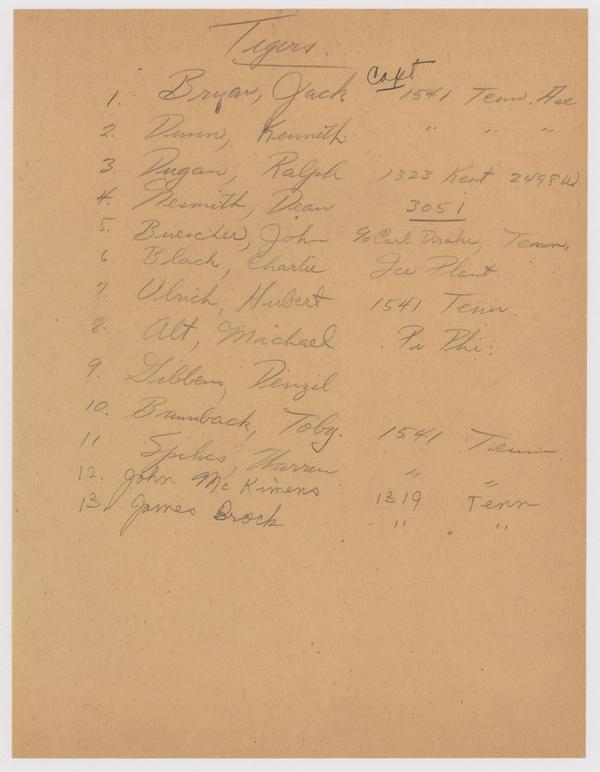 Tigers.
1. Bryan, Jack Capt 1541 Tenn. Ave
2. Dunn, Kenneth. " " "
3. Dugan, Ralph 1323 Kent 2498W
4. Nesmith, Dean 3051
5. Buescher, John % Carl Drake, Tenn.
6. Black, Charlie Ice Plant.
7. Ulrich, Hubert 1541 Tenn.
8. Alt, Michael Pi Phi.
9. Gibbens, Denzil
10. Brumback, Toby. 1541 Tenn
11 Spikes, Warren " "
12. John McKimens 1319 Tenn
13. James Brock " "